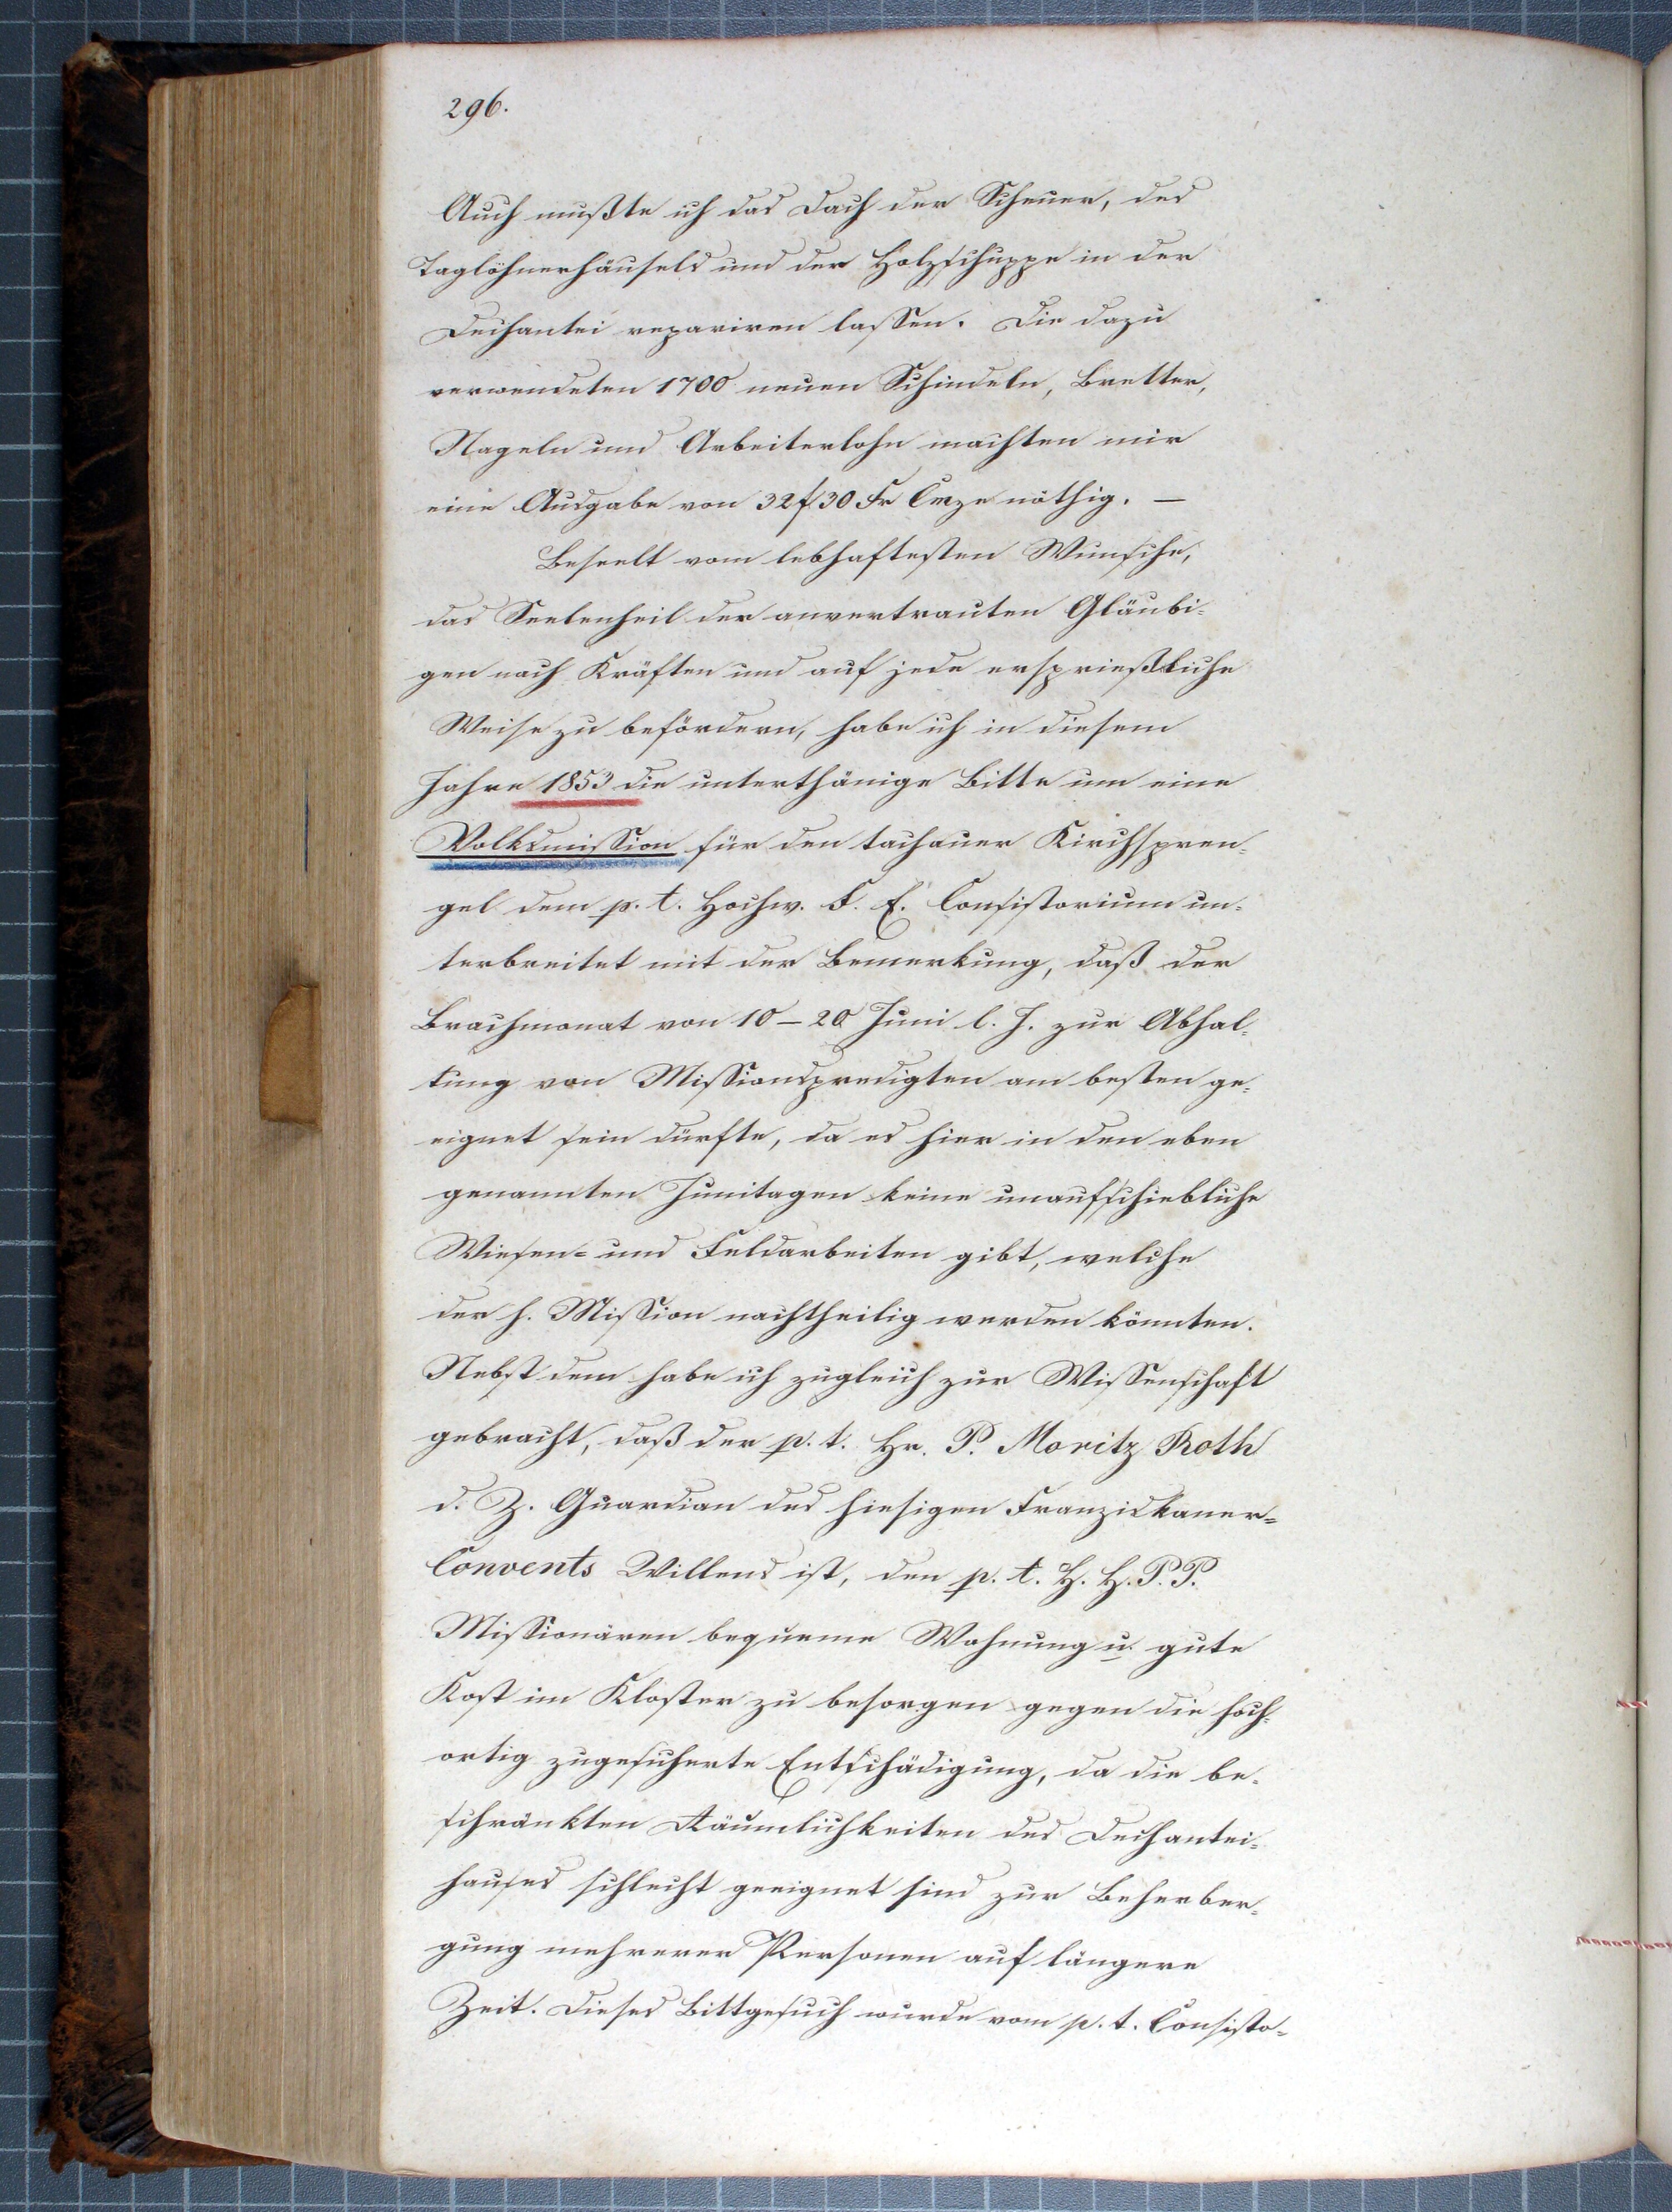 296.
Auch mußte ich das Dach der Scheuer, des
Taglöhnerhäusels und der Holzschuppe in der
Dechantei repariren lassen. Die dazu
verwendeten 1700 neuen Schindeln, Bretter,
Nageln und Arbeiterlohn machten mir
eine Ausgabe von 32 f 30 Xr Cmze nöthig. —
Beseelt vom lebhaftesten Wunsche,
das Seelenheil der anvertrauten Gläubi-
gen nach Kräften und auf jede ersprießliche
Weise zu befördern, habe ich in diesem
Jahre 1853 die unterthänige Bitte um eine
Volksmission für den tachauer Kirchspren-
gel dem p. t. Hochw. F. E. Consistorium un-
terbreitet mit der Bemerkung, daß der
Brachmonat von 10–20 Juni l. J. zur Abhal-
tung von Missionspredigten am besten ge-
eignet sein dürfte, da es hier in den eben
genannten Junitagen keine unaufschiebliche
Wiesen- und Feldarbeiten gibt, welche
der h. Mission nachtheilig werden könnten.
Nebst dem habe ich zugleich zur Wissenschaft
gebracht, daß der p. t. Hr. P. Moritz Roth
d. Z. Guardian des hiesigen Franziskaner-
Convents Willens ist, den p. t. H. H. P. P.
Missionären bequeme Wohnung u. gute
Kost im Kloster zu besorgen gegen die hoch-
ortig zugesicherte Entschädigung, da die be-
schränkten Räumlichkeiten des Dechantei-
hauses schlecht geeignet sind zur Beherber-
gung mehrerer Personen auf längere
Zeit. Dieses Bittgesuch wurde vom p. t. Consisto-